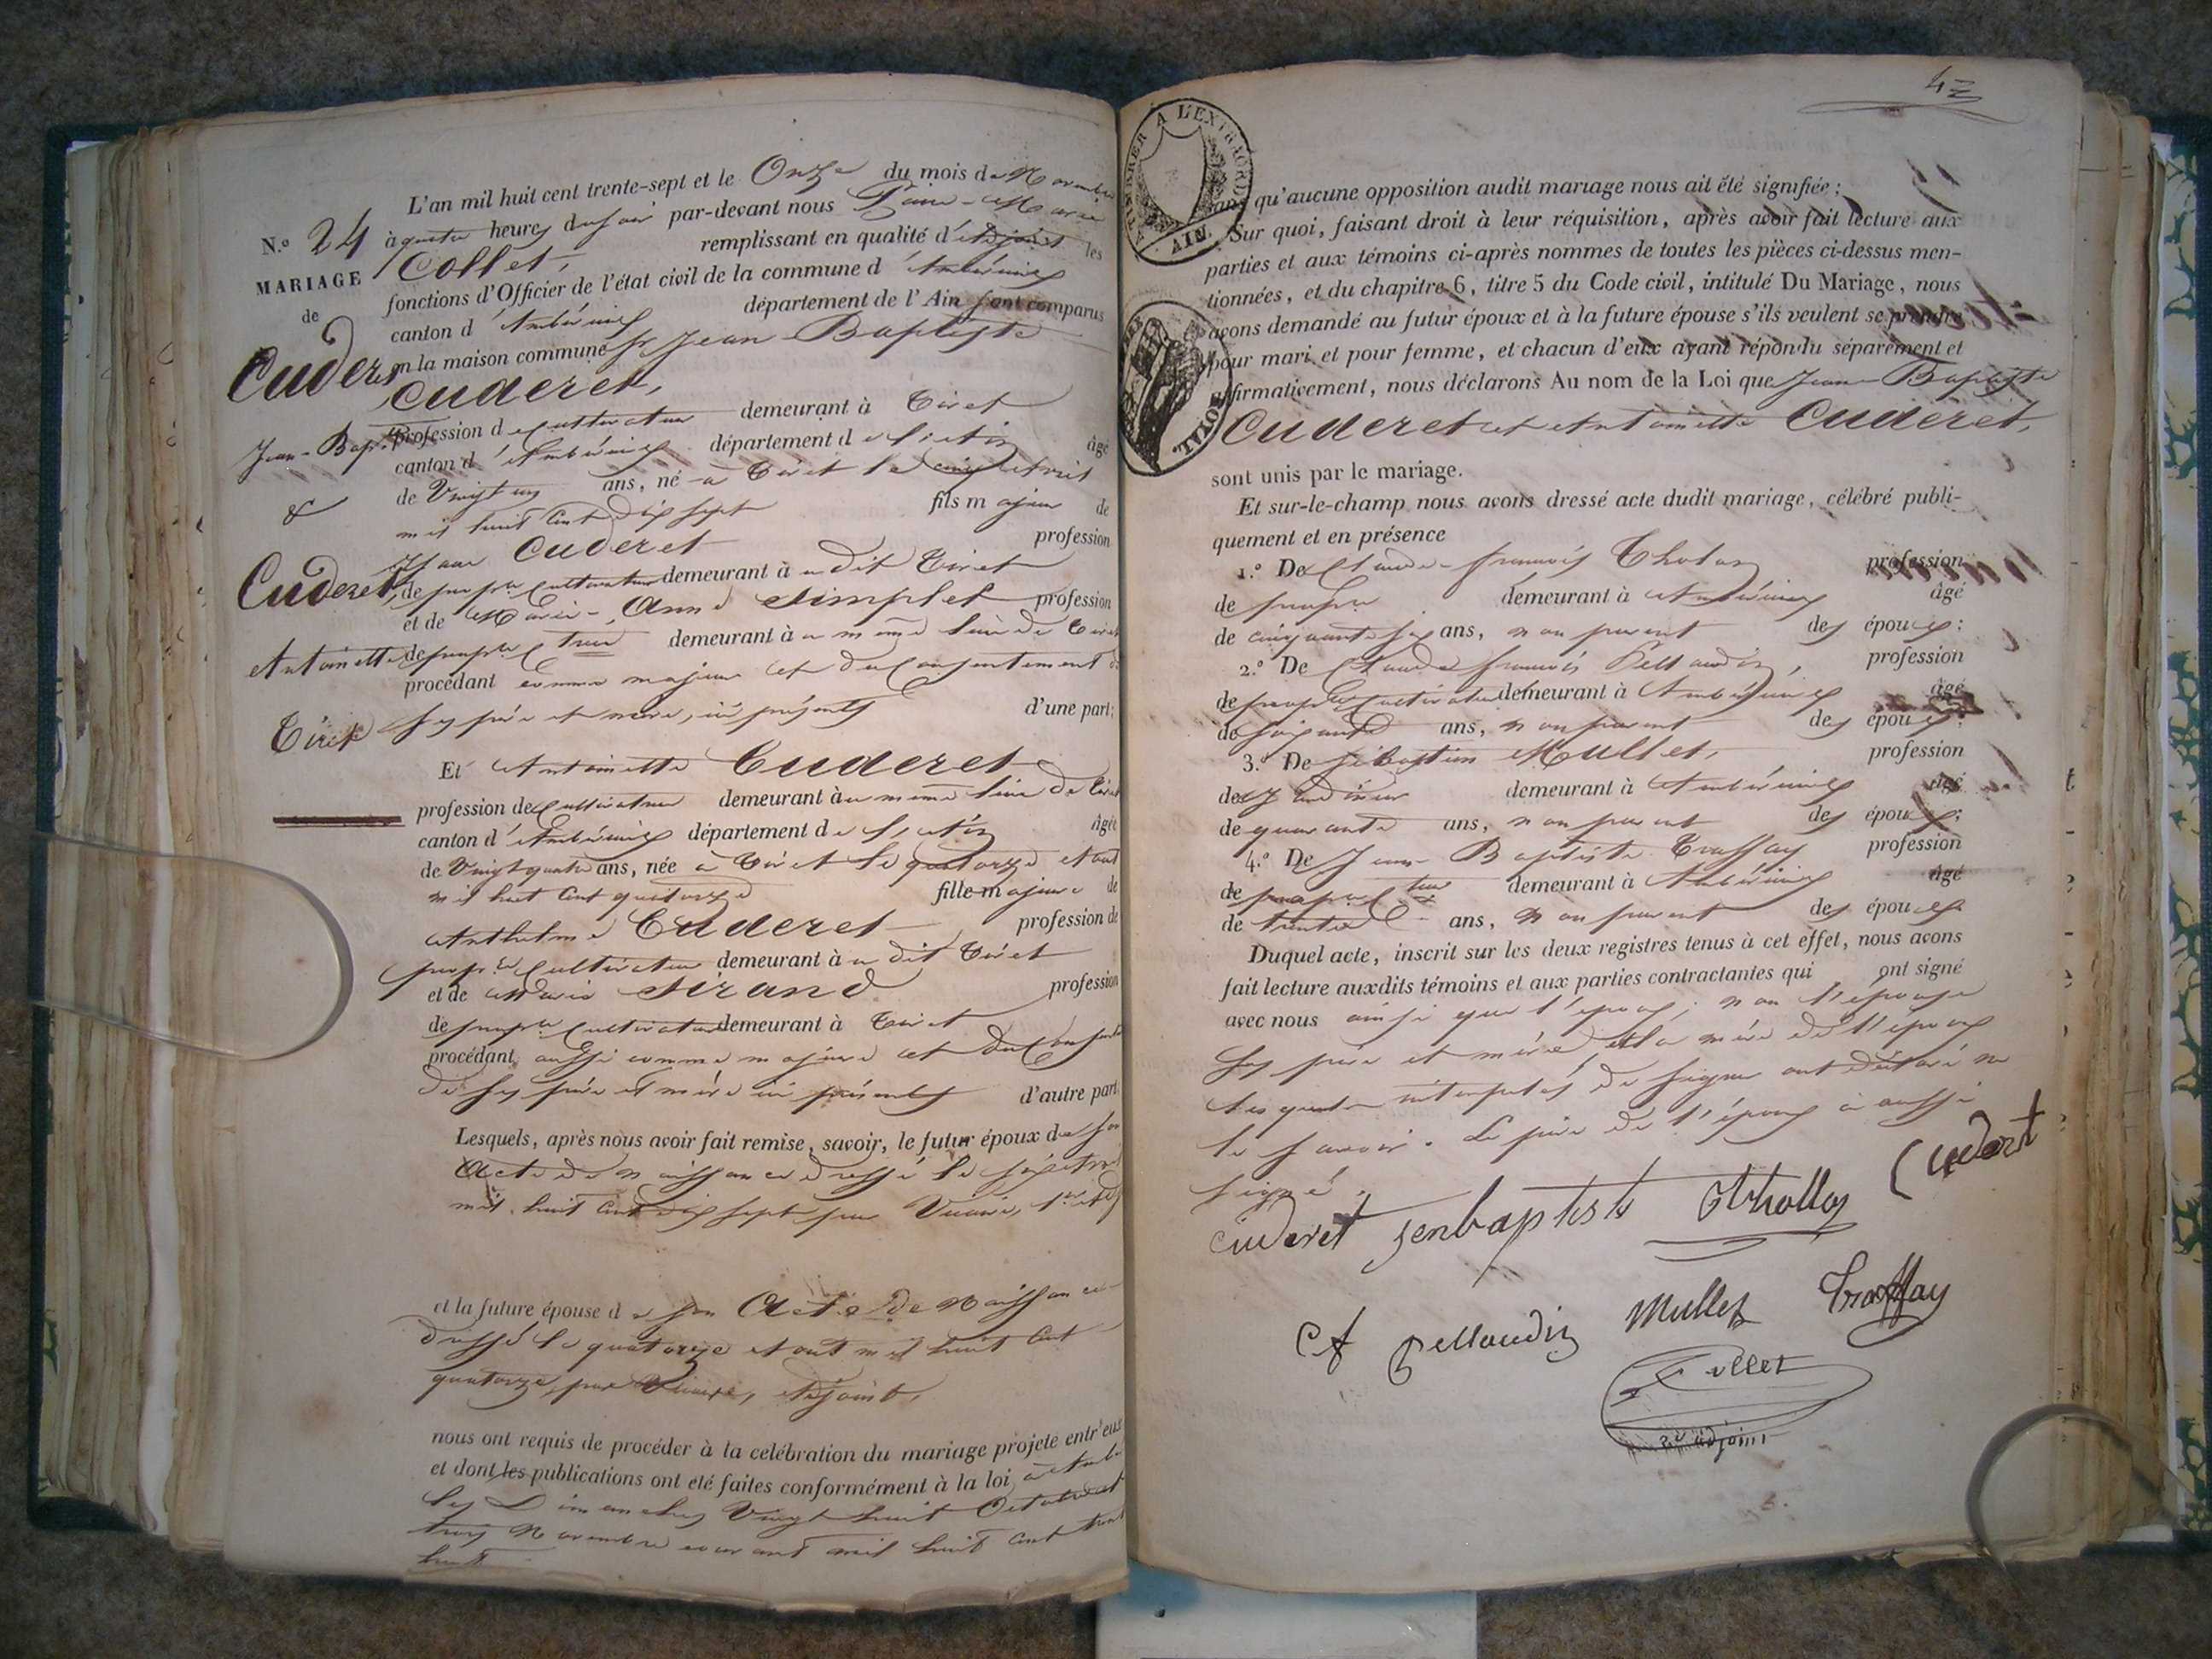 L'an mil huit cent trente-sept et le Onze du mois de Novembre
N.º 24 à quatre heures du soir par-devant nous Marie
MARIAGE Collet, remplissant en qualité d'Adjoint les
de fonctions d'Officier de l'état civil de la commune d'Ambérieux
canton d'Ambérieux département de l'Ain sont comparus
Cuderet en la maison commune Sr Jean Baptiste
Cuderet,
Jean-Bapte profession de cultivateur demeurant à Tiret
canton d'Ambérieux département de l'Ain âgé
& de Vingt un ans, né à Tiret le cinq
mil huit cent dix sept fils majeur de
Cuderet profession
Cuderet, de propre cultivateur demeurant à u dit Tiret
et de Marie-Anne Simplet profession
Antoinette de propre demeurant à u même lieu de Tiret
procédant comme majeur et du consentement de
Tiret ses père et mère, ici présents d'une part;
Et Antoinette Cuderet
profession de Cultivateur demeurant à u même lieu de Tiret
canton d'Ambérieux département de l'Ain âgée
de Vingt quatre ans, née à Tiret le quatorze Aout
mil huit cent quatorze fille majeure de
Anthelme Cuderet profession de
propre Cultivateur demeurant à u dit Tiret
et de Marie Sirand profession
de propre Cultivateur demeurant à Tiret
procédant aussi comme majeure et du
de ses père et mère ici présents d'autre part.
Lesquels, après nous avoir fait remise, savoir, le futur époux de son
Acte de naissance dressé le
mil huit cent dix sept par
et la future épouse de son Acte de Naissance
dressé le quatorze Aout mil huit cent
quatorze par Adjoint,
nous ont requis de procéder à la celébration du mariage projeté entr'eux
et dont les publications ont été faites conformément à la loi à
les Dimanches Vingt huit Octobre et
Novembre courant mil huit cent trente
huit
42
TIMBRER A L'EXTRAORD.
AIN.
ROYAL.
sans qu'aucune opposition audit mariage nous ait été signifiée;
Sur quoi, faisant droit à leur réquisition, après avoir fait lecture aux
parties et aux témoins ci-après nommes de toutes les pièces ci-dessus men-
tionnées, et du chapitre 6, titre 5 du Code civil, intitulé Du Mariage, nous
avons demandé au futur époux et à la future épouse s'ils veulent se prendre
pour mari et pour femme, et chacun d'eux ayant répondu séparément et
affirmativement, nous déclarons Au nom de la Loi que Jean-Baptiste
Cuderet et Antoinette Cuderet,
sont unis par le mariage.
Et sur-le-champ nous avons dressé acte dudit mariage, célébré publi-
quement et en présence
1.º De Claude-françois Tholon profession
de propre demeurant à Ambérieux âgé
de cinquante six ans, non parent des époux:
2.º De Claude françois Pellaudin, profession
de propre Cultivateur demeurant à Ambérieux âgé
de soixante ans, non parent des époux;
3.º De Sébastien Mullet, profession
de demeurant à Ambérieux âgé
de quarante ans, non parent des époux;
4.º De Jean-Baptiste Traffay profession
de demeurant à Ambérieux âgé
de trente ans, non parent des époux
Duquel acte, inscrit sur les deux registres tenus à cet effet, nous avons
fait lecture auxdits témoins et aux parties contractantes qui ont signé
avec nous ainsi que l'époux; non l'épouse
ses père et mère et la mère de l'époux
lesquels interpelés de signer ont déclaré ne
le savoir. Le père de l'époux a aussi
signé.
Cuderet jenbaptiste Cuderet
Cf Pellaudin Mullet Traffay
Collet
2e adjoint